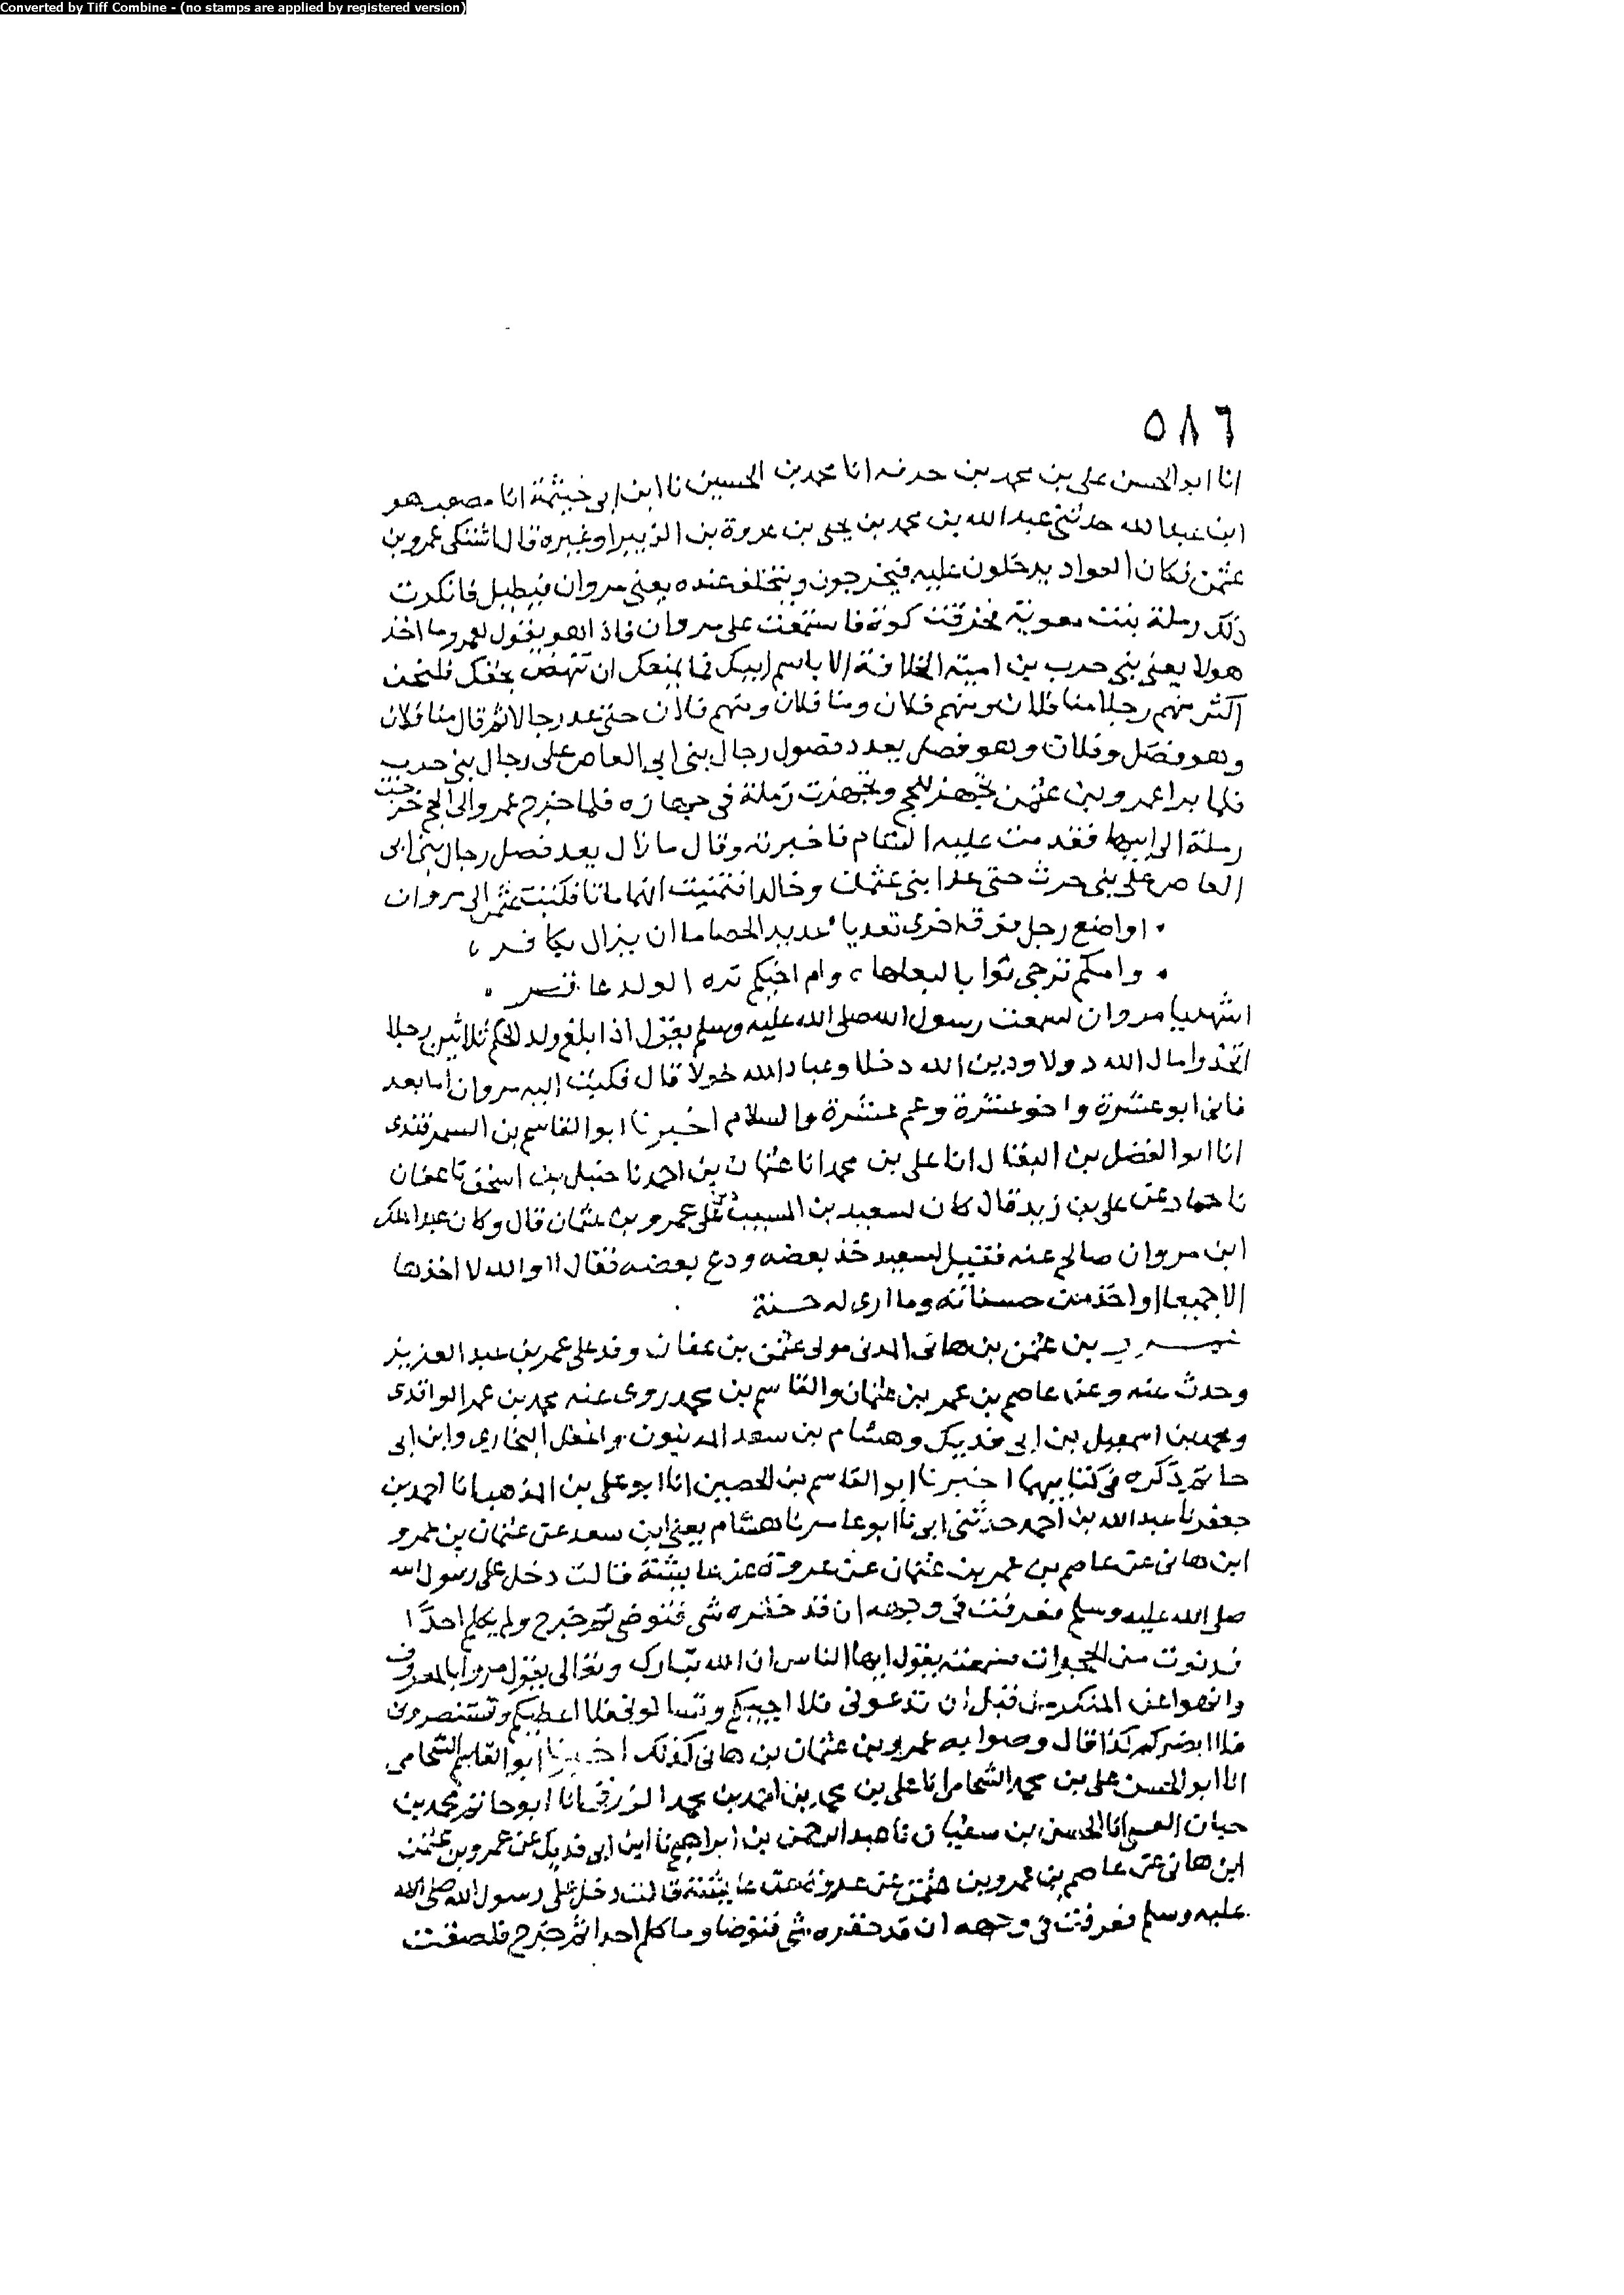 Converted by Tiff Combine - (no stamps are applied by registered version)
٥٨٦
انا ابو الحسن على بن محمد بن خزفه انا محمد بن الحسين نا ابن ابى خيثمة انا مصعب هو
ابن عبد الله حدثنى عبد الله بن محمد بن يحيى بن عروة بن الزبير او غيره قال اشتكى عمرو بن
عثمن فكان العواد يدخلون عليه فيخرجون ويتخلف عنده يعنى مروان فيطيل فانكرت
ذلك رملة بنت معوية فخرقت كوة فاستمعت على مروان فاذا هو يقول لعمرو ما اخذ
هولا يعنى بنى حرب بن امية الخلافة الا باسم ابيك فما يمنعك ان تنهض بحقك فلنحن
اكثر منهم رجالا منا فلان ومنهم فلان ومنا فلان ومنهم فلان حتى عد رجالا ثم قال منا فلان
وهو فضل وفلان وهو فضل يعدد فضول رجال بنى ابى العاص على رجال بنى حرب
فلما برا عمرو بن عثمن تجهز للحج وتجهزت رملة فى جهازه فلما خرج عمرو الى الحج خرجت
رملة الى ابيها فقدمت عليه الشام فاخبرته وقال ما زال يعد فضل رجال بنى ابى
العاص على بنى حرث حتى عد ابنى عثمان وخالدا فتمنيت انهما ماتا فكتب الى مروان
اواضع رجل فوق اخرى تعديا عديد الحصا ما ان يزال يكاثر
وامكم تزجى تواما لبعلها وام اخيكم نزه الولد عاقر
اشهد يا مروان لسمعت رسول الله صلى الله عليه وسلم يقول اذا بلغ ولد الحكم ثلاثين رجلا
اتخذوا مال الله دولا ودين الله دخلا وعباد الله خولا قال فكتب اليه مروان اما بعد
فانى ابو عشرة واخو عشرة وعم عشرة والسلام اخبرنا ابو القاسم بن السمرقندى
انا ابو الفضل بن البقال انا على بن محمد انا عثمان بن احمد نا حنبل بن اسحق نا عفان
نا حماد عن على بن زيد قال كان لسعيد بن المسيب دين على عمرو بن عثمان قال وكان عبد الملك
ابن مروان صالح عنه فقيل لسعيد خذ بعضه ودع بعضه فقال لا والله لا اخذها
الا جميعا او اخذ من حسناته وما ارى له حسنة
بن عثمن بن هانى المدنى مولى عثمن بن عفان وفد على عمر بن عبد العزيز
وحدث عنه وعن عاصم بن عمر بن عثمان والقاسم بن محمد روى عنه محمد بن عمر الواقدى
ومحمد بن اسمعيل بن ابى فديك وهشام بن سعد المدنيون واغفل البخارى وابن ابى
حاتم ذكره فى كتابيهما اخبرنا ابو القاسم بن الحصين انا ابو على بن المذهب انا احمد بن
جعفر نا عبد الله بن احمد حدثنى ابى نا ابو عامر نا هشام يعنى ابن سعد عن عثمان بن عمرو
ابن هانى عن عاصم بن عمر بن عثمان عن عروة عن عايشة قالت دخل على رسول الله
صلى الله عليه وسلم فعرفت فى وجهه ان قد حفزه شى فتوضى ثم خرج ولم يكلم احدا
فدنوت من الحجرات فسمعته يقول ايها الناس ان الله تبارك وتعالى يقول مروا بالمعروف
وانهوا عن المنكر من قبل ان تدعونى فلا اجيبكم وتسالونى فلا اعطيكم وتستنصرونى
فلا انصركم كذا قال وصوابه عمرو بن عثمان بن هانى كذلك اخبرنا ابو القاسم الشحامى
انا ابو الحسن على بن محمد الشحامى انا على بن محمد بن احمد بن محمد الزوزنى انا ابو حاتم محمد بن
حبان انا الحسن بن سفيان نا عبد الرحمن بن ابراهيم نا ابن ابى فديك عن عمرو بن عثمن
ابن هانى عن عاصم بن عمرو بن عثمن عن عروة عن عايشة قالت دخل على رسول الله صلى الله
عليه وسلم فعرفت فى وجهه ان قد حفزه شى فتوضا وما كلم احدا ثم خرج فلصقت